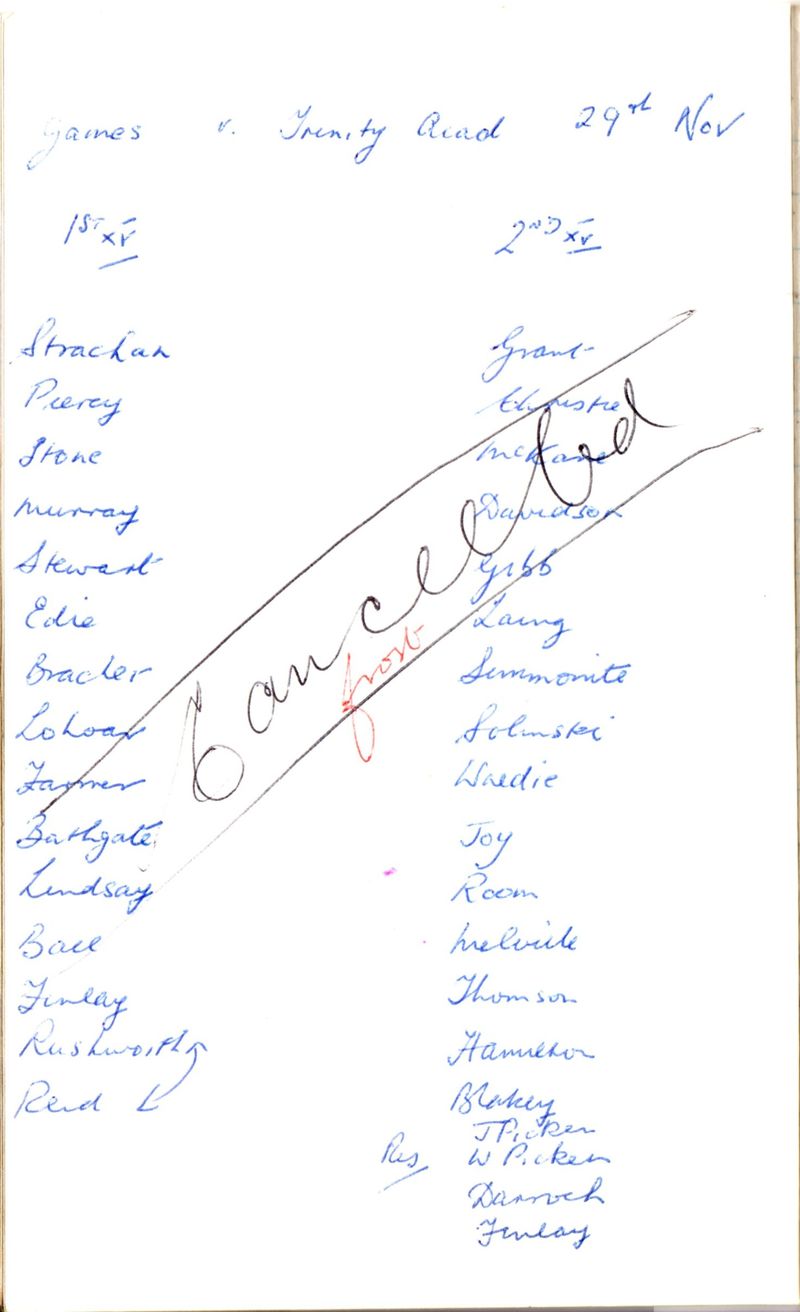 Games v. Trinity Acad 29th Nov
1ST XV
Strachan
Piercy
Stone
Murray
Stewart
Edie
Bracher
Farmer
Bathgate
Lindsay
Ball
Finlay
Rushworth
Reid
2ND XV
Grant
Christie
McKane
Davidson
Gibb
Laing
Simmonite
Solinski
Waldie
Joy
Room
Melville
Thomson
Hamilton
Blakey
J Picken
Res W Picken
Darroch
Finlay
Cancelled
frost